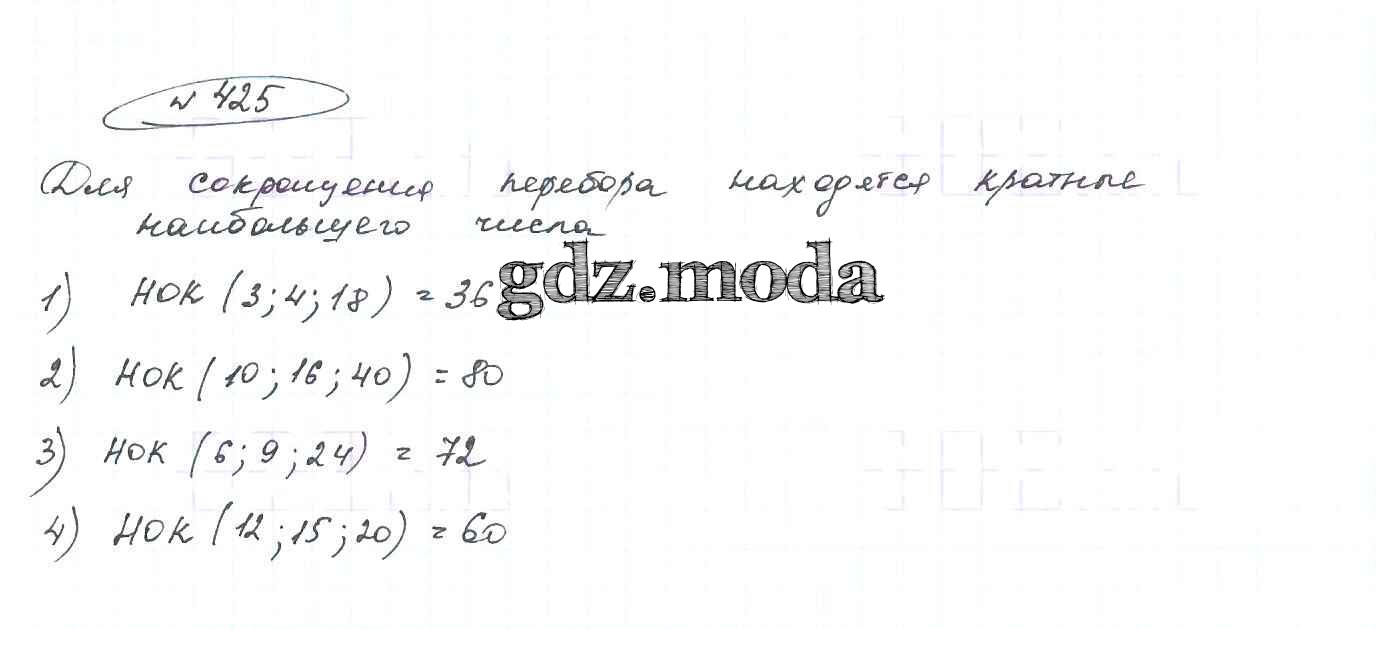 № 425
Для сокращения перебора находятся кратные
наибольшего числа
gdz.moda
1) НОК (3; 4; 18) = 36
2) НОК (10; 16; 40) = 80
3) НОК (6; 9; 24) = 72
4) НОК (12; 15; 20) = 60